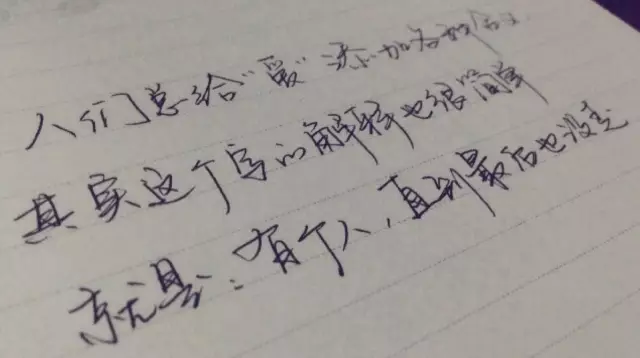 人们总给“爱”添加各种含义
其实这个字的解释也很简单
就是：有个人，直到最后也没走